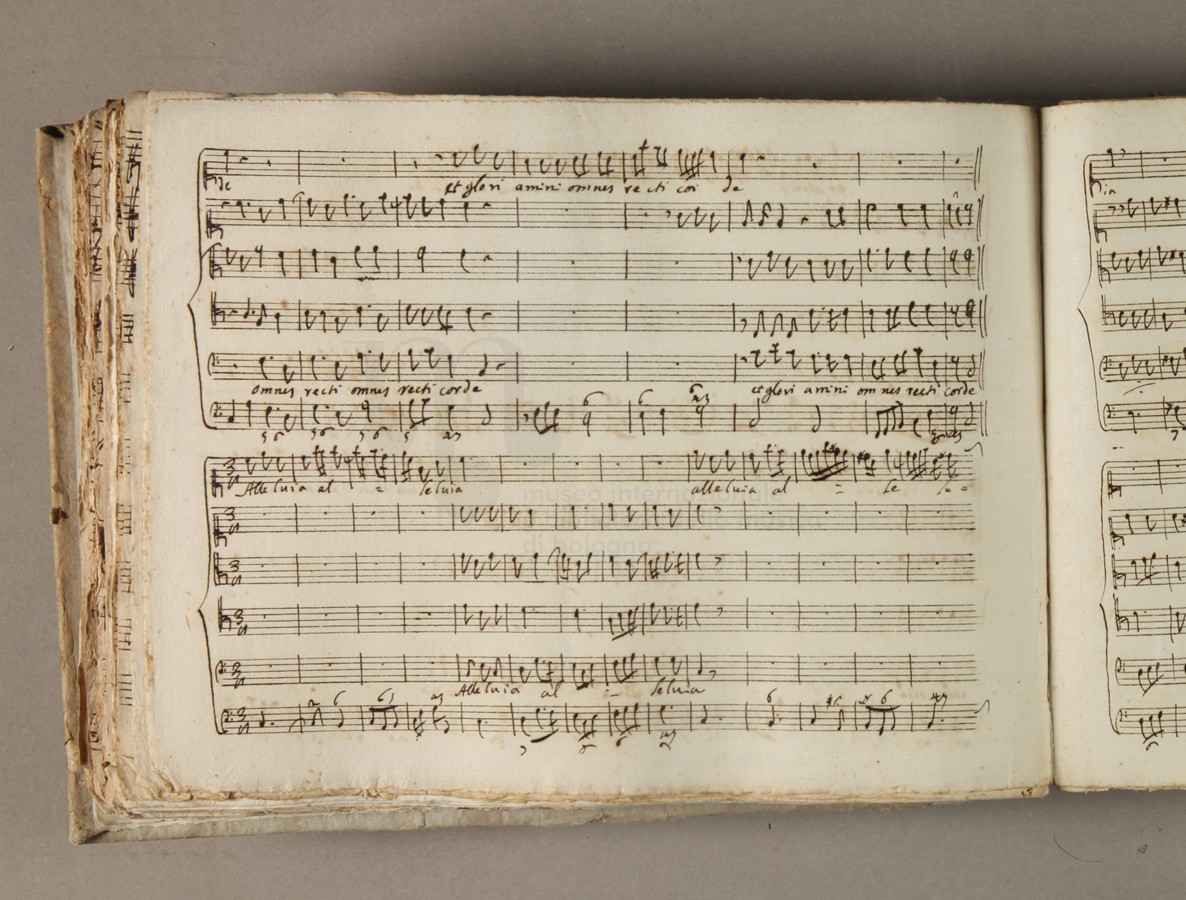 de
et glori amini omnes recti cor de
omnes recti omnes recti corde
et glori amini omnes recti corde
Alleluia al = leluia alleluia al = le lu =
museo internazionale
di bologna
Alleluia al = leluia